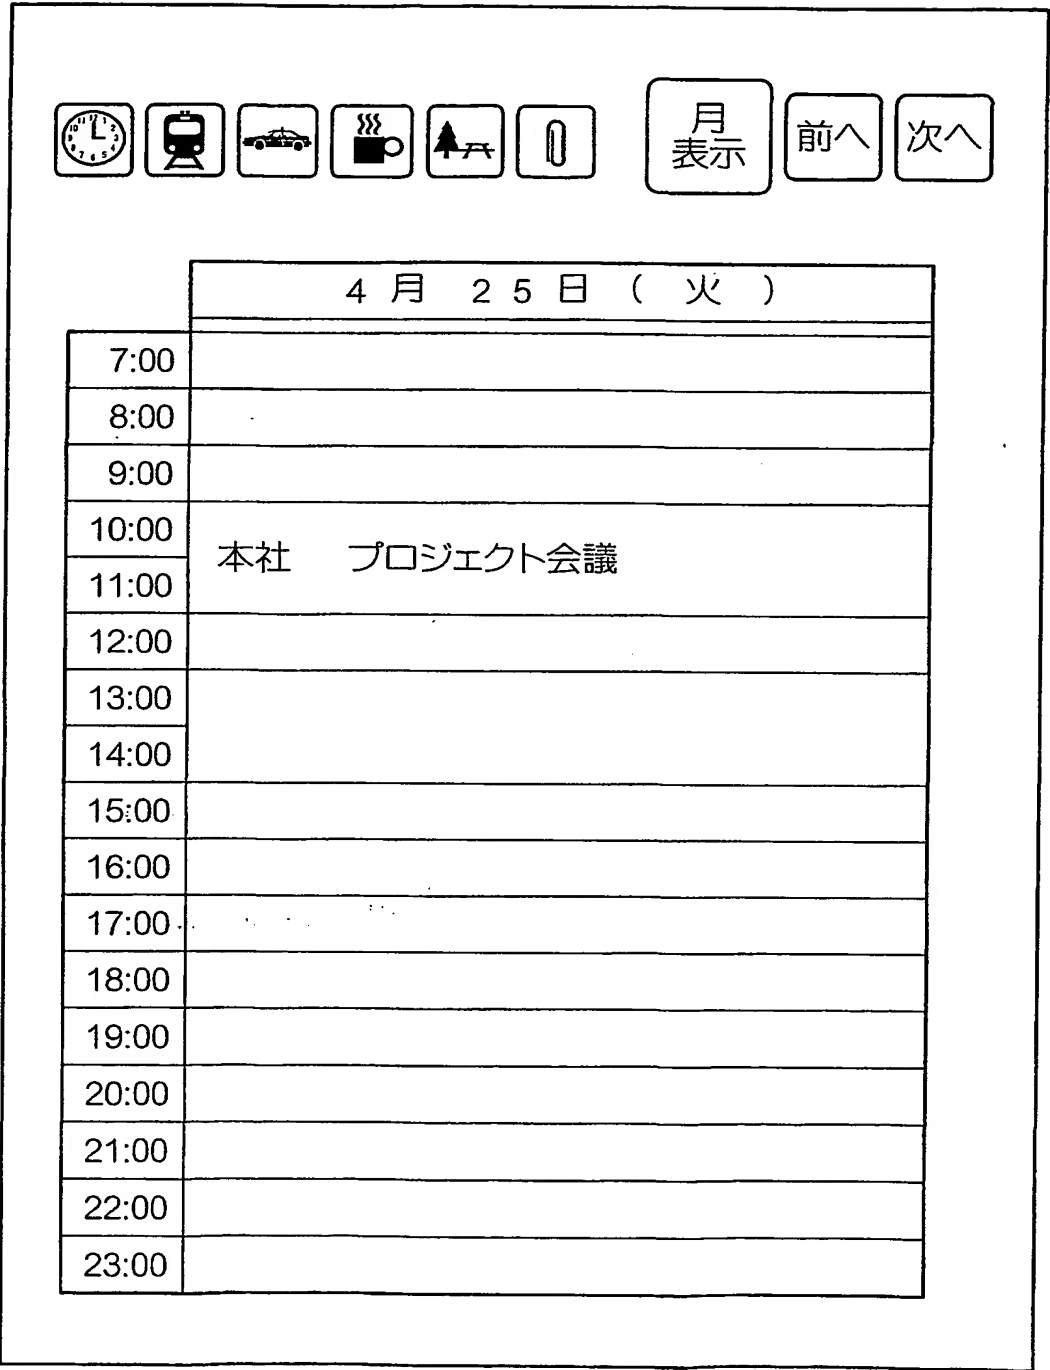 月
表示
前へ
次へ
4月 25日(火)
7:00
8:00
9:00
10:00
本社 プロジェクト会議
11:00
12:00
13:00
14:00
15:00
16:00
17:00
18:00
19:00
20:00
21:00
22:00
23:00